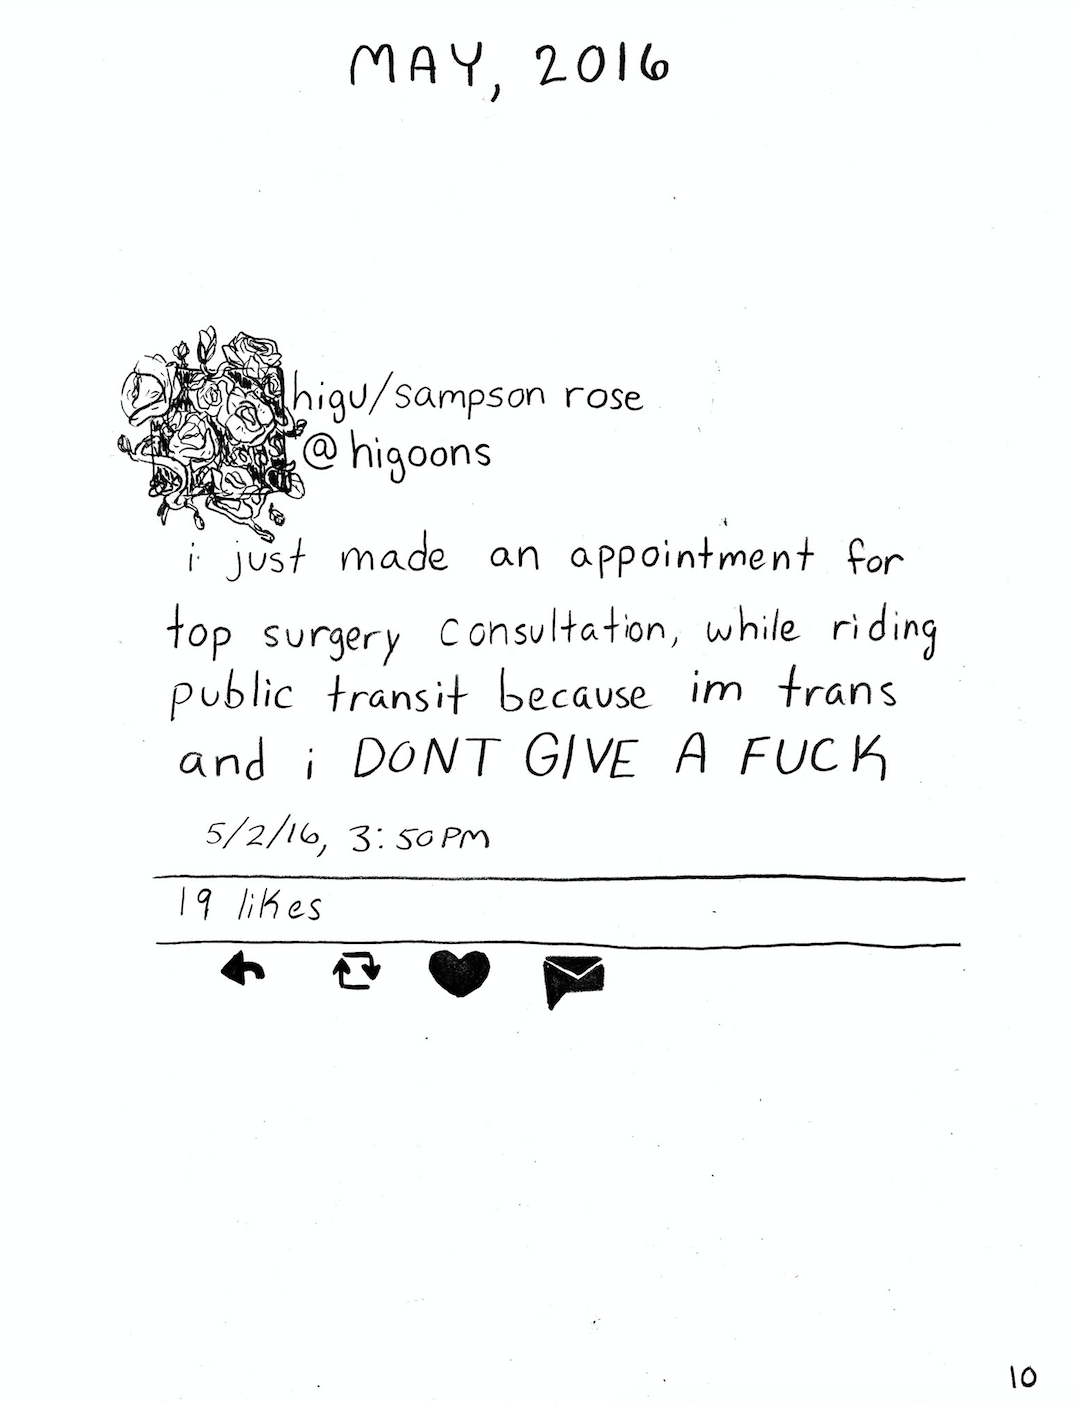 MAY, 2016
higu/sampson rose
@higoons
i just made an appointment for
top surgery consultation, while riding
public transit because im trans
and i DONT GIVE A FUCK
5/2/16, 3:50PM
19 likes
10